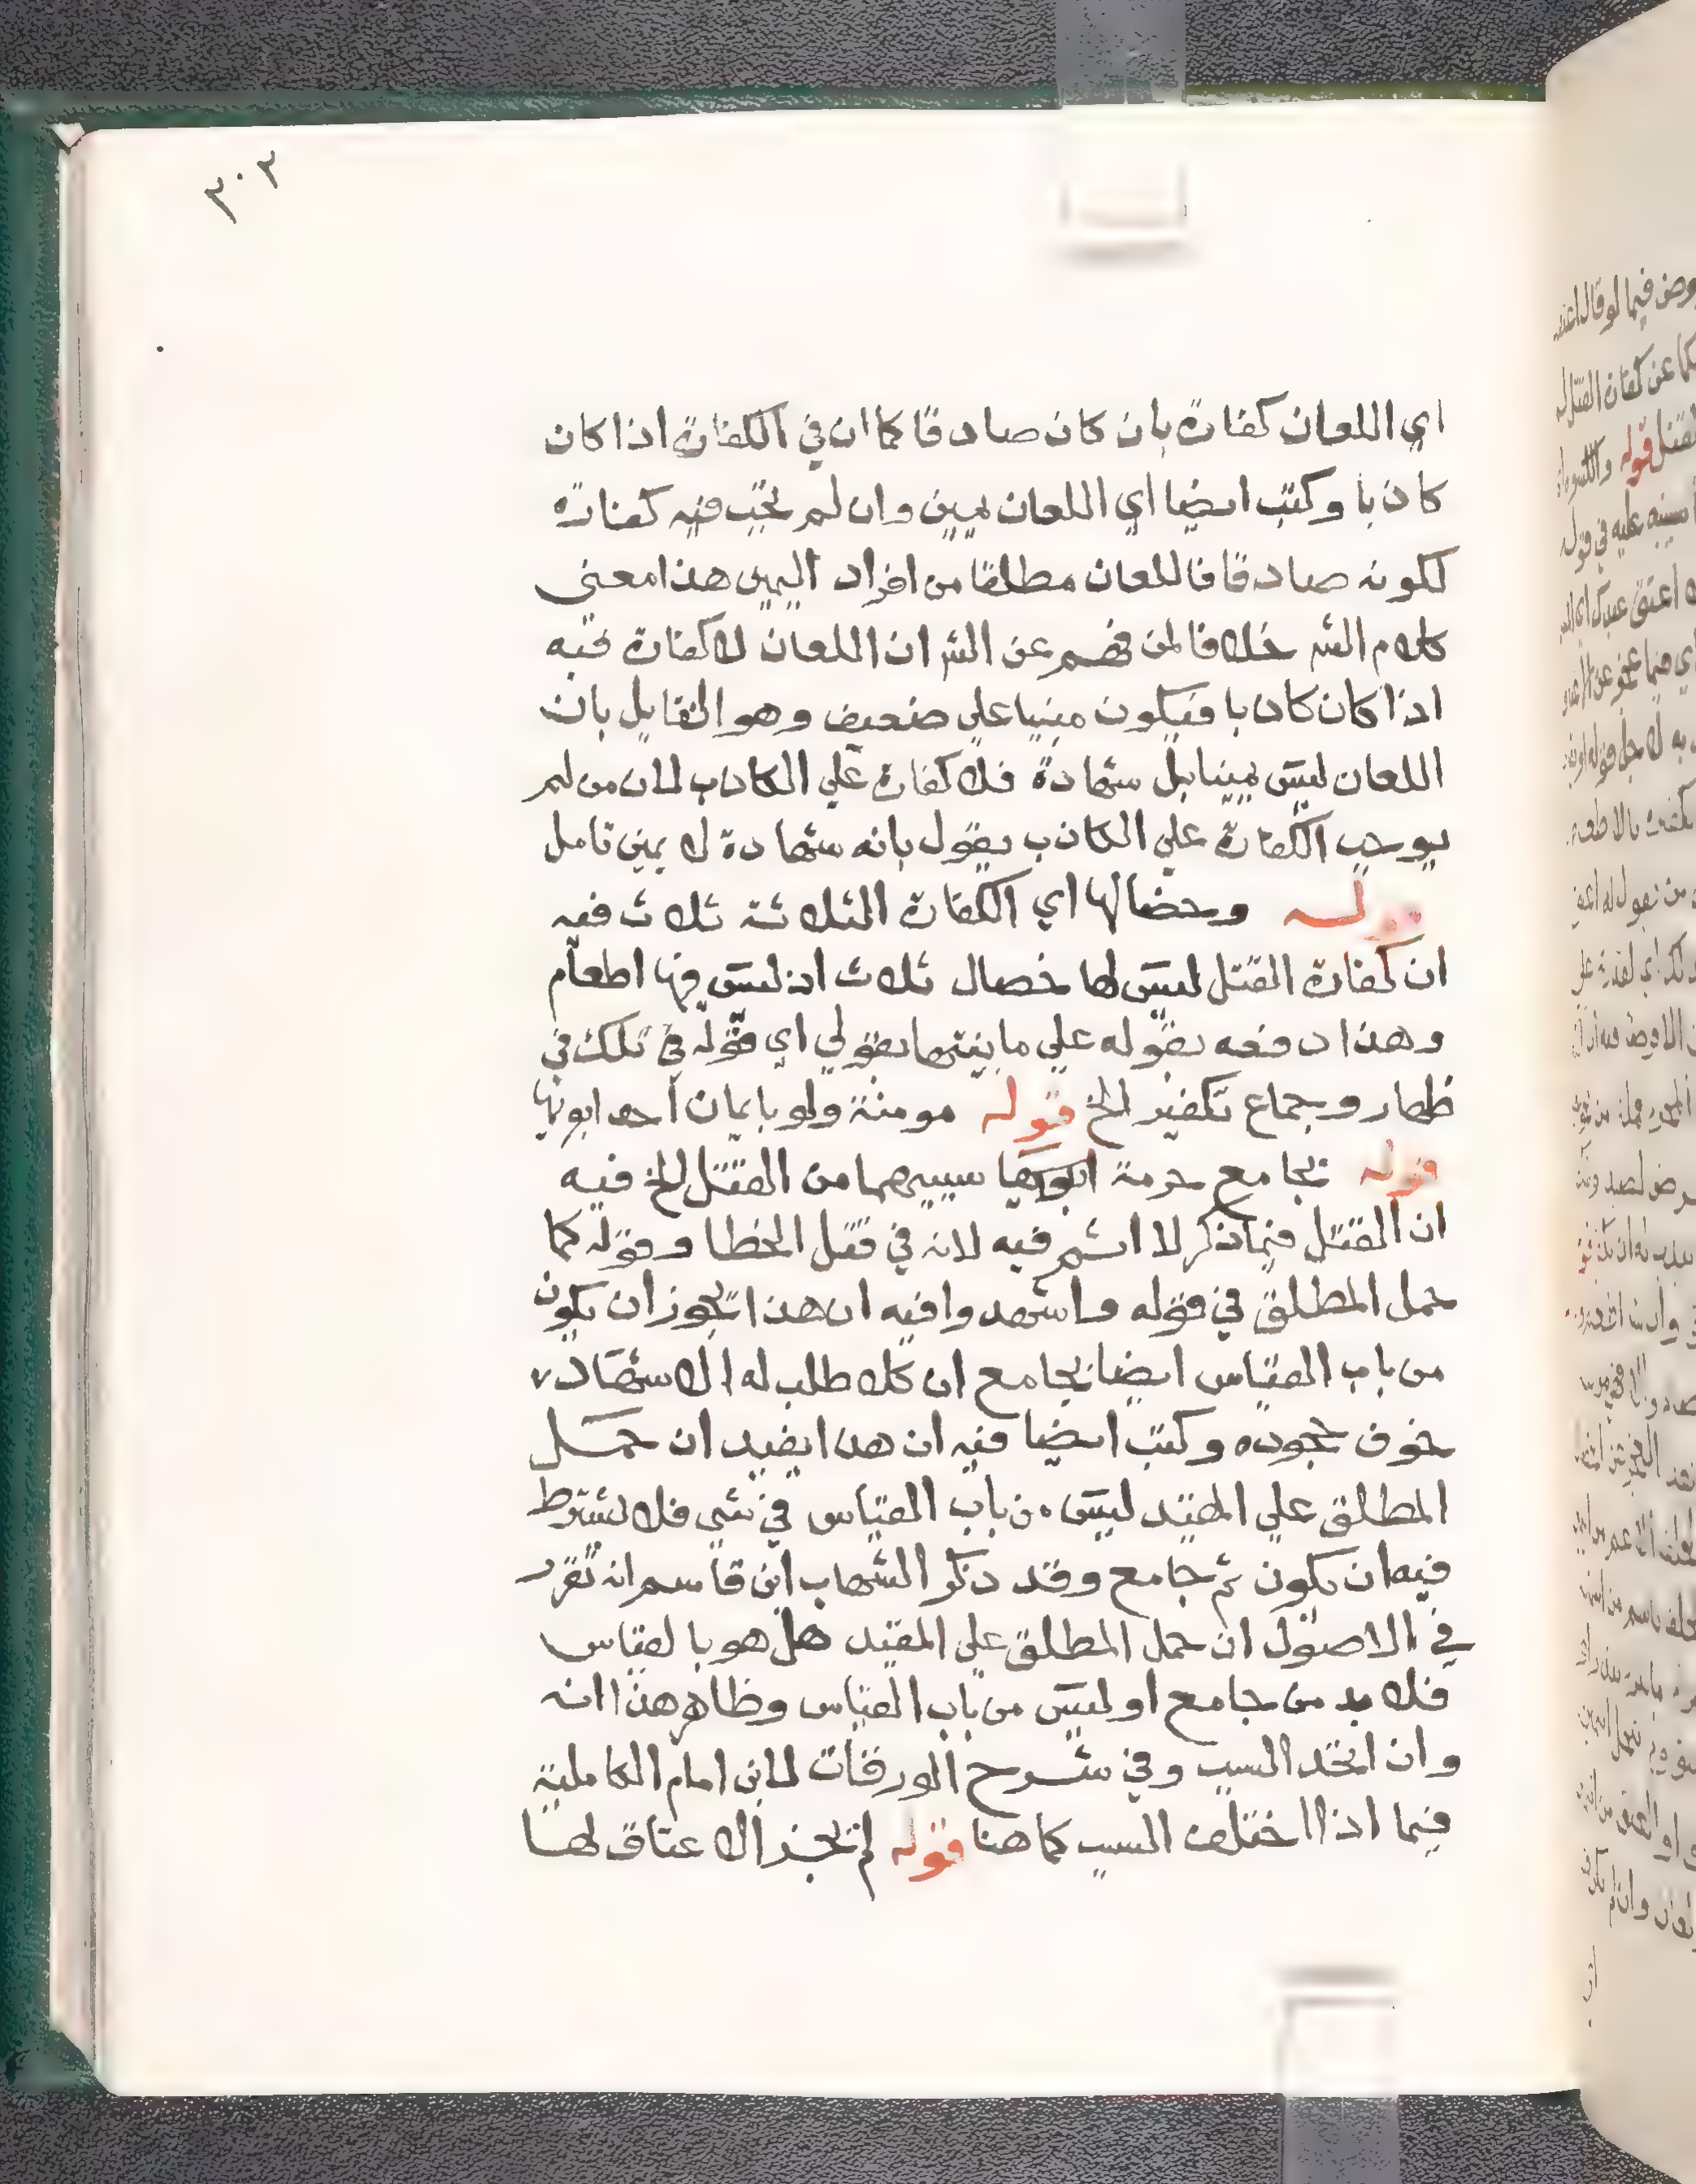 ٣٠٢
اي اللعان كفارة بان كان صادقا كما ان في الكفارة اذا كان
كاذبا وكتب ايضا اي اللعان يمين وان لم تجب فيه كفارة
لكونه صادقا فاللعان مطلقا من افراد اليمين هذا معنى
كلام الشر خلافا لمن فهم عن الشر ان اللعان لا كفارة فيه
اذا كان كاذبا فيكون مبنيا علي ضعيف وهو القايل بان
اللعان ليس يمينا بل شهادة فلا كفارة علي الكاذب لان من لم
يوجب الكفارة علي الكاذب يقول بانه شهادة لا يمين تامل
قوله وخصالها اي الكفارة الثلاثة ثلاث فيه
ان كفارة القتل ليس لها خصال ثلاث اذ ليس فيها اطعام
وهذا دفعه بقوله علي ما بينتها بقولي اي قوله في تلك في
ظهار وجماع تكفير الخ قوله مومنة ولو بايمان احد ابويها
قوله بجامع حرمة سببيهما من القتل الخ فيه
ان القتل فيما ذكر لا اثم فيه لانه في قتل الخطا وقوله كما
حمل المطلق في قوله واشهدوا فيه ان هذا يجوز ان يكون
من باب القياس ايضا بجامع ان كلا طلب له الاشهاد
خوف جحوده وكتب ايضا فيه ان هذا يفيد ان حمل
المطلق علي المقيد ليس من باب القياس في شي فلا يشترط
فيه ان يكون ثم جامع وقد ذكر الشهاب ابن قاسم انه تقرر
في الاصول ان حمل المطلق علي المقيد هل هو بالقياس
فلا بد من جامع او ليس من باب القياس وظاهر هذا انه
وان اتحد السبب وفي شرح الورقات لابن امام الكاملية
فيما اذا اختلف السبب كما هنا قوله لم يجز الا عتاق لها